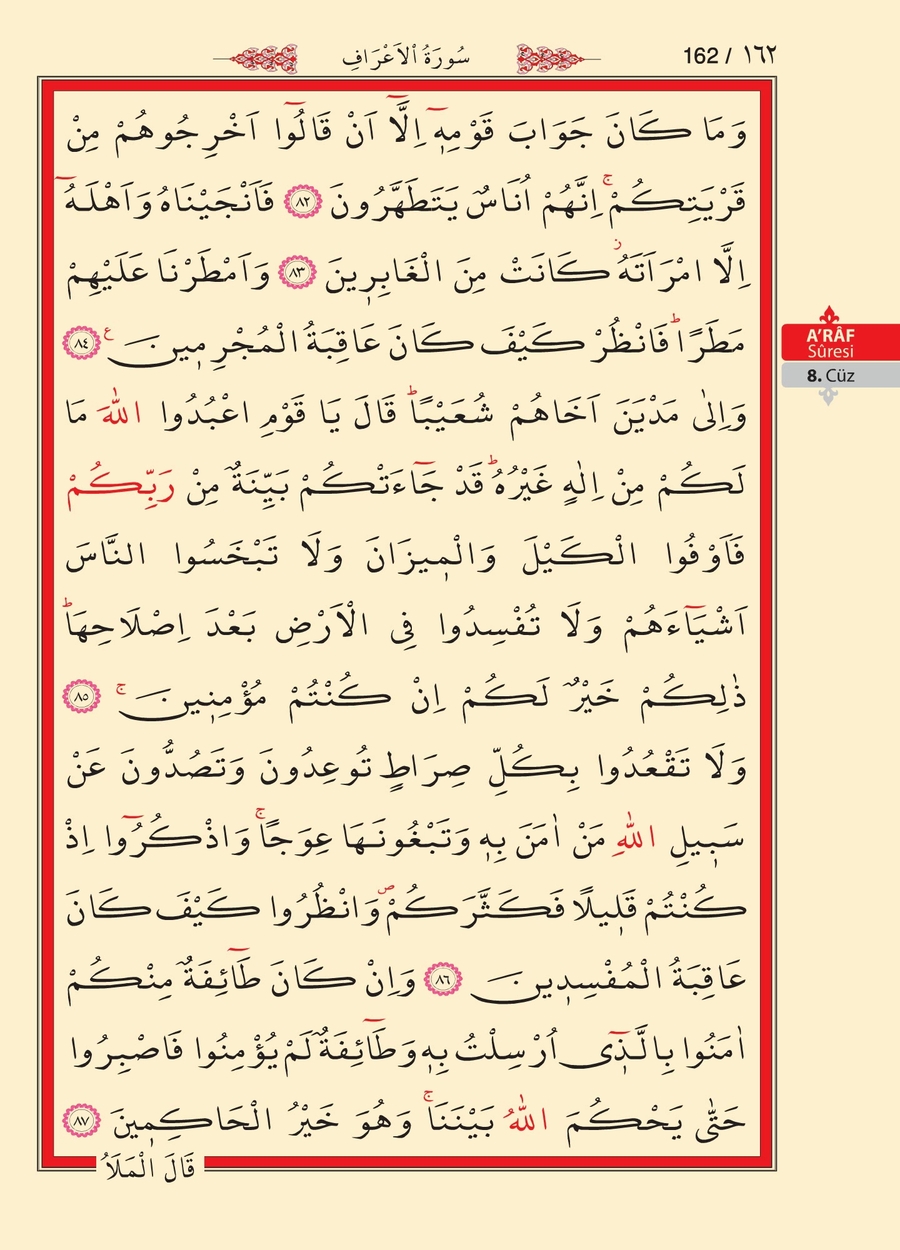 162 / ١٦٢
سُورَةُ الْاَعْرَافِ
وَمَا كَانَ جَوَابَ قَوْمِه۪ٓ اِلَّٓا اَنْ قَالُٓوا اَخْرِجُوهُمْ مِنْ
قَرْيَتِكُمْۚ اِنَّهُمْ اُنَاسٌ يَتَطَهَّرُونَ ﴿٨٢﴾ فَاَنْجَيْنَاهُ وَاَهْلَهُٓ
اِلَّا امْرَاَتَهُۘ كَانَتْ مِنَ الْغَابِر۪ينَ ﴿٨٣﴾ وَاَمْطَرْنَا عَلَيْهِمْ
مَطَرًاۜ فَانْظُرْ كَيْفَ كَانَ عَاقِبَةُ الْمُجْرِم۪ينَ ع ﴿٨٤﴾
وَاِلٰى مَدْيَنَ اَخَاهُمْ شُعَيْبًاۜ قَالَ يَا قَوْمِ اعْبُدُوا اللّٰهَ مَا
لَكُمْ مِنْ اِلٰهٍ غَيْرُهُۜ قَدْ جَٓاءَتْكُمْ بَيِّنَةٌ مِنْ رَبِّكُمْ
فَاَوْفُوا الْكَيْلَ وَالْم۪يزَانَ وَلَا تَبْخَسُوا النَّاسَ
اَشْيَٓاءَهُمْ وَلَا تُفْسِدُوا فِى الْاَرْضِ بَعْدَ اِصْلَاحِهَاۜ
ذٰلِكُمْ خَيْرٌ لَكُمْ اِنْ كُنْتُمْ مُؤْمِن۪ينَۚ ﴿٨٥﴾
وَلَا تَقْعُدُوا بِكُلِّ صِرَاطٍ تُوعِدُونَ وَتَصُدُّونَ عَنْ
سَب۪يلِ اللّٰهِ مَنْ اٰمَنَ بِه۪ وَتَبْغُونَهَا عِوَجًاۚ وَاذْكُرُٓوا اِذْ
كُنْتُمْ قَل۪يلًا فَكَثَّرَكُمْۖ وَانْظُرُوا كَيْفَ كَانَ
عَاقِبَةُ الْمُفْسِد۪ينَ ﴿٨٦﴾ وَاِنْ كَانَ طَٓائِفَةٌ مِنْكُمْ
اٰمَنُوا بِالَّذ۪ٓى اُرْسِلْتُ بِه۪ وَطَٓائِفَةٌ لَمْ يُؤْمِنُوا فَاصْبِرُوا
حَتّٰى يَحْكُمَ اللّٰهُ بَيْنَنَاۚ وَهُوَ خَيْرُ الْحَاكِم۪ينَ ﴿٨٧﴾
قَالَ الْمَلَاُ
A'RÂF
Sûresi
8. Cüz